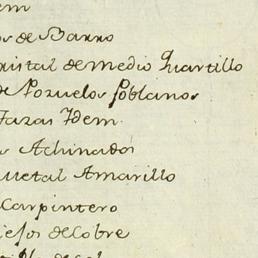 em
os de Barro
ristal de medio quartillo
de Pozuelos Poblanos
Tazas Idem.
s Achinados
Metal Amarillo
Carpintero
iejos de Cobre